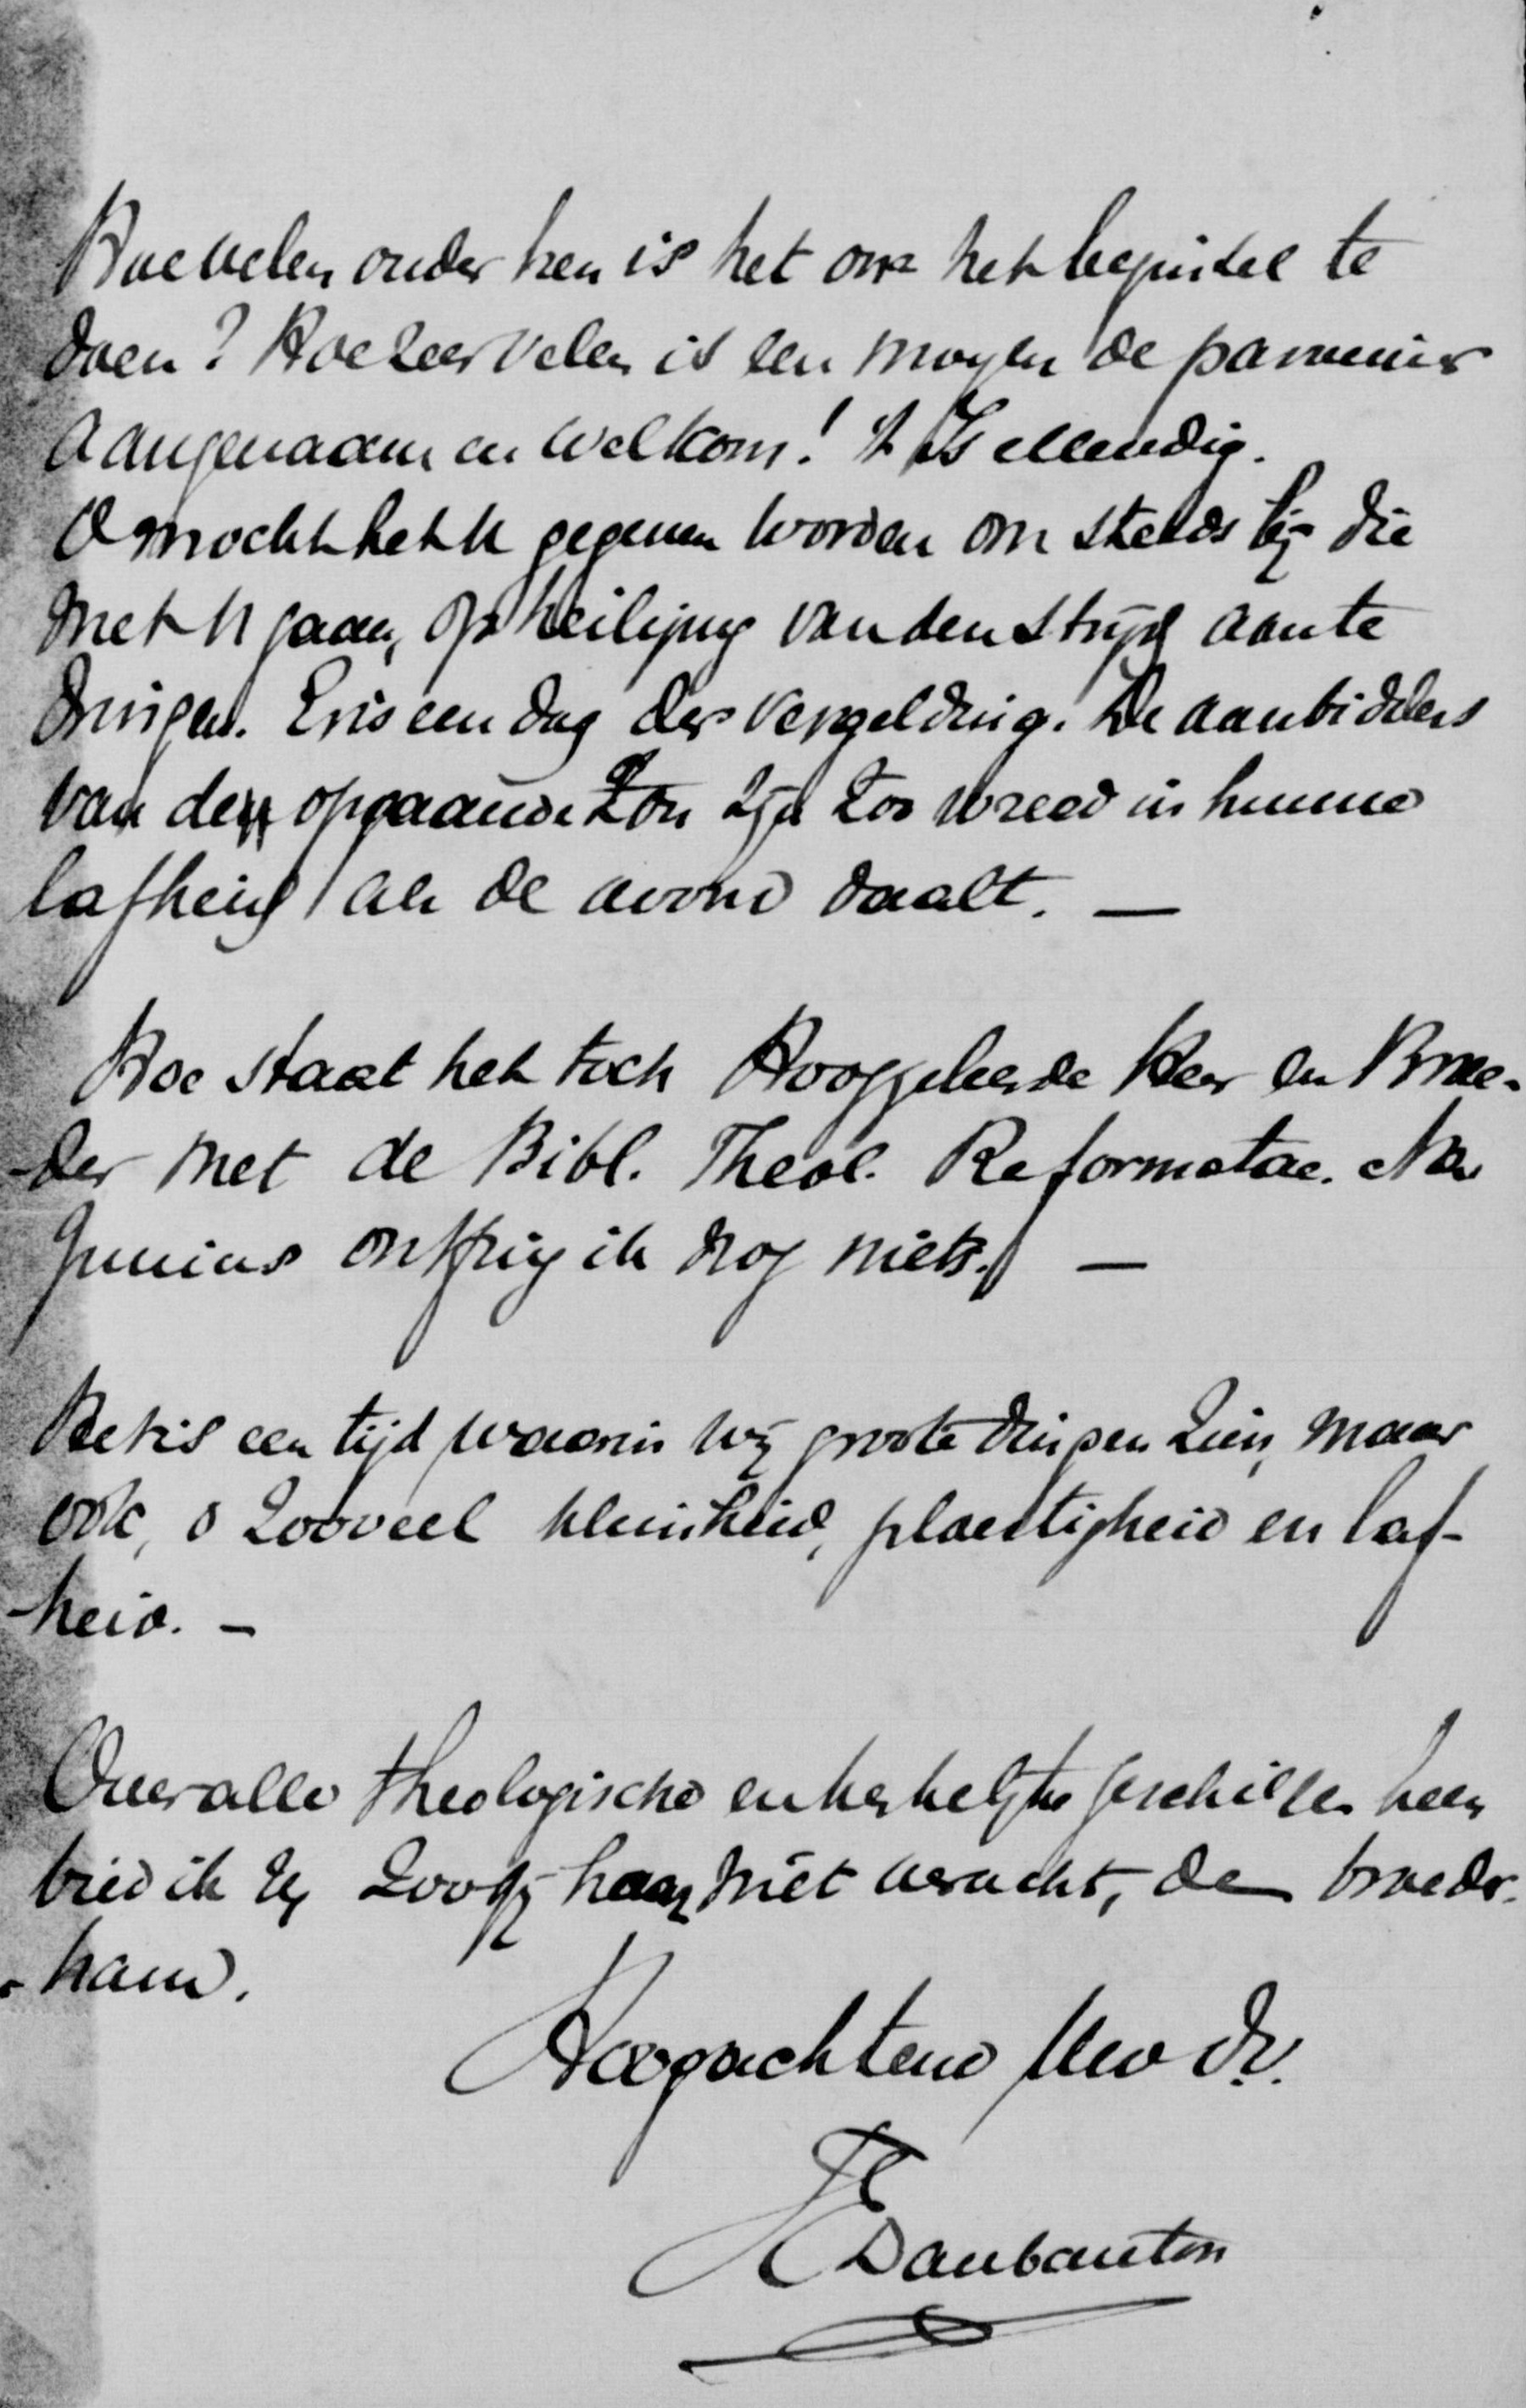 Hoevelen onder hen is het om het beginsel te
doen? Hoe zeer velen is een moyen de parvenir
aangenaam en welkom! 't Is ellendig.
O mocht het U gegeven worden om steeds bij die
met U gaan, op heiliging van den strijd aan te
dringen. Er is een dag der vergelding. De aanbidders
van den opgaande zon zijn zoo wreed in hunne
lafheid als de avond daalt. —
Hoe staat het toch Hooggeleerde Heer en Broe-
-der met de Bibl. Theol. Reformatae. Na
Junius ontfing ik nog niets. —
Het is een tijd waarin wij groote dingen zien, maar
ook, o zooveel kleinheid, plaertigheid en laf-
-heid. —
Over alle theologische en kerkelijke geschillen heen
bied ik U, zoo gij haar niet veracht, de broeder-
-hand.
Hoogachtend Uw dr.
FE Daubanton